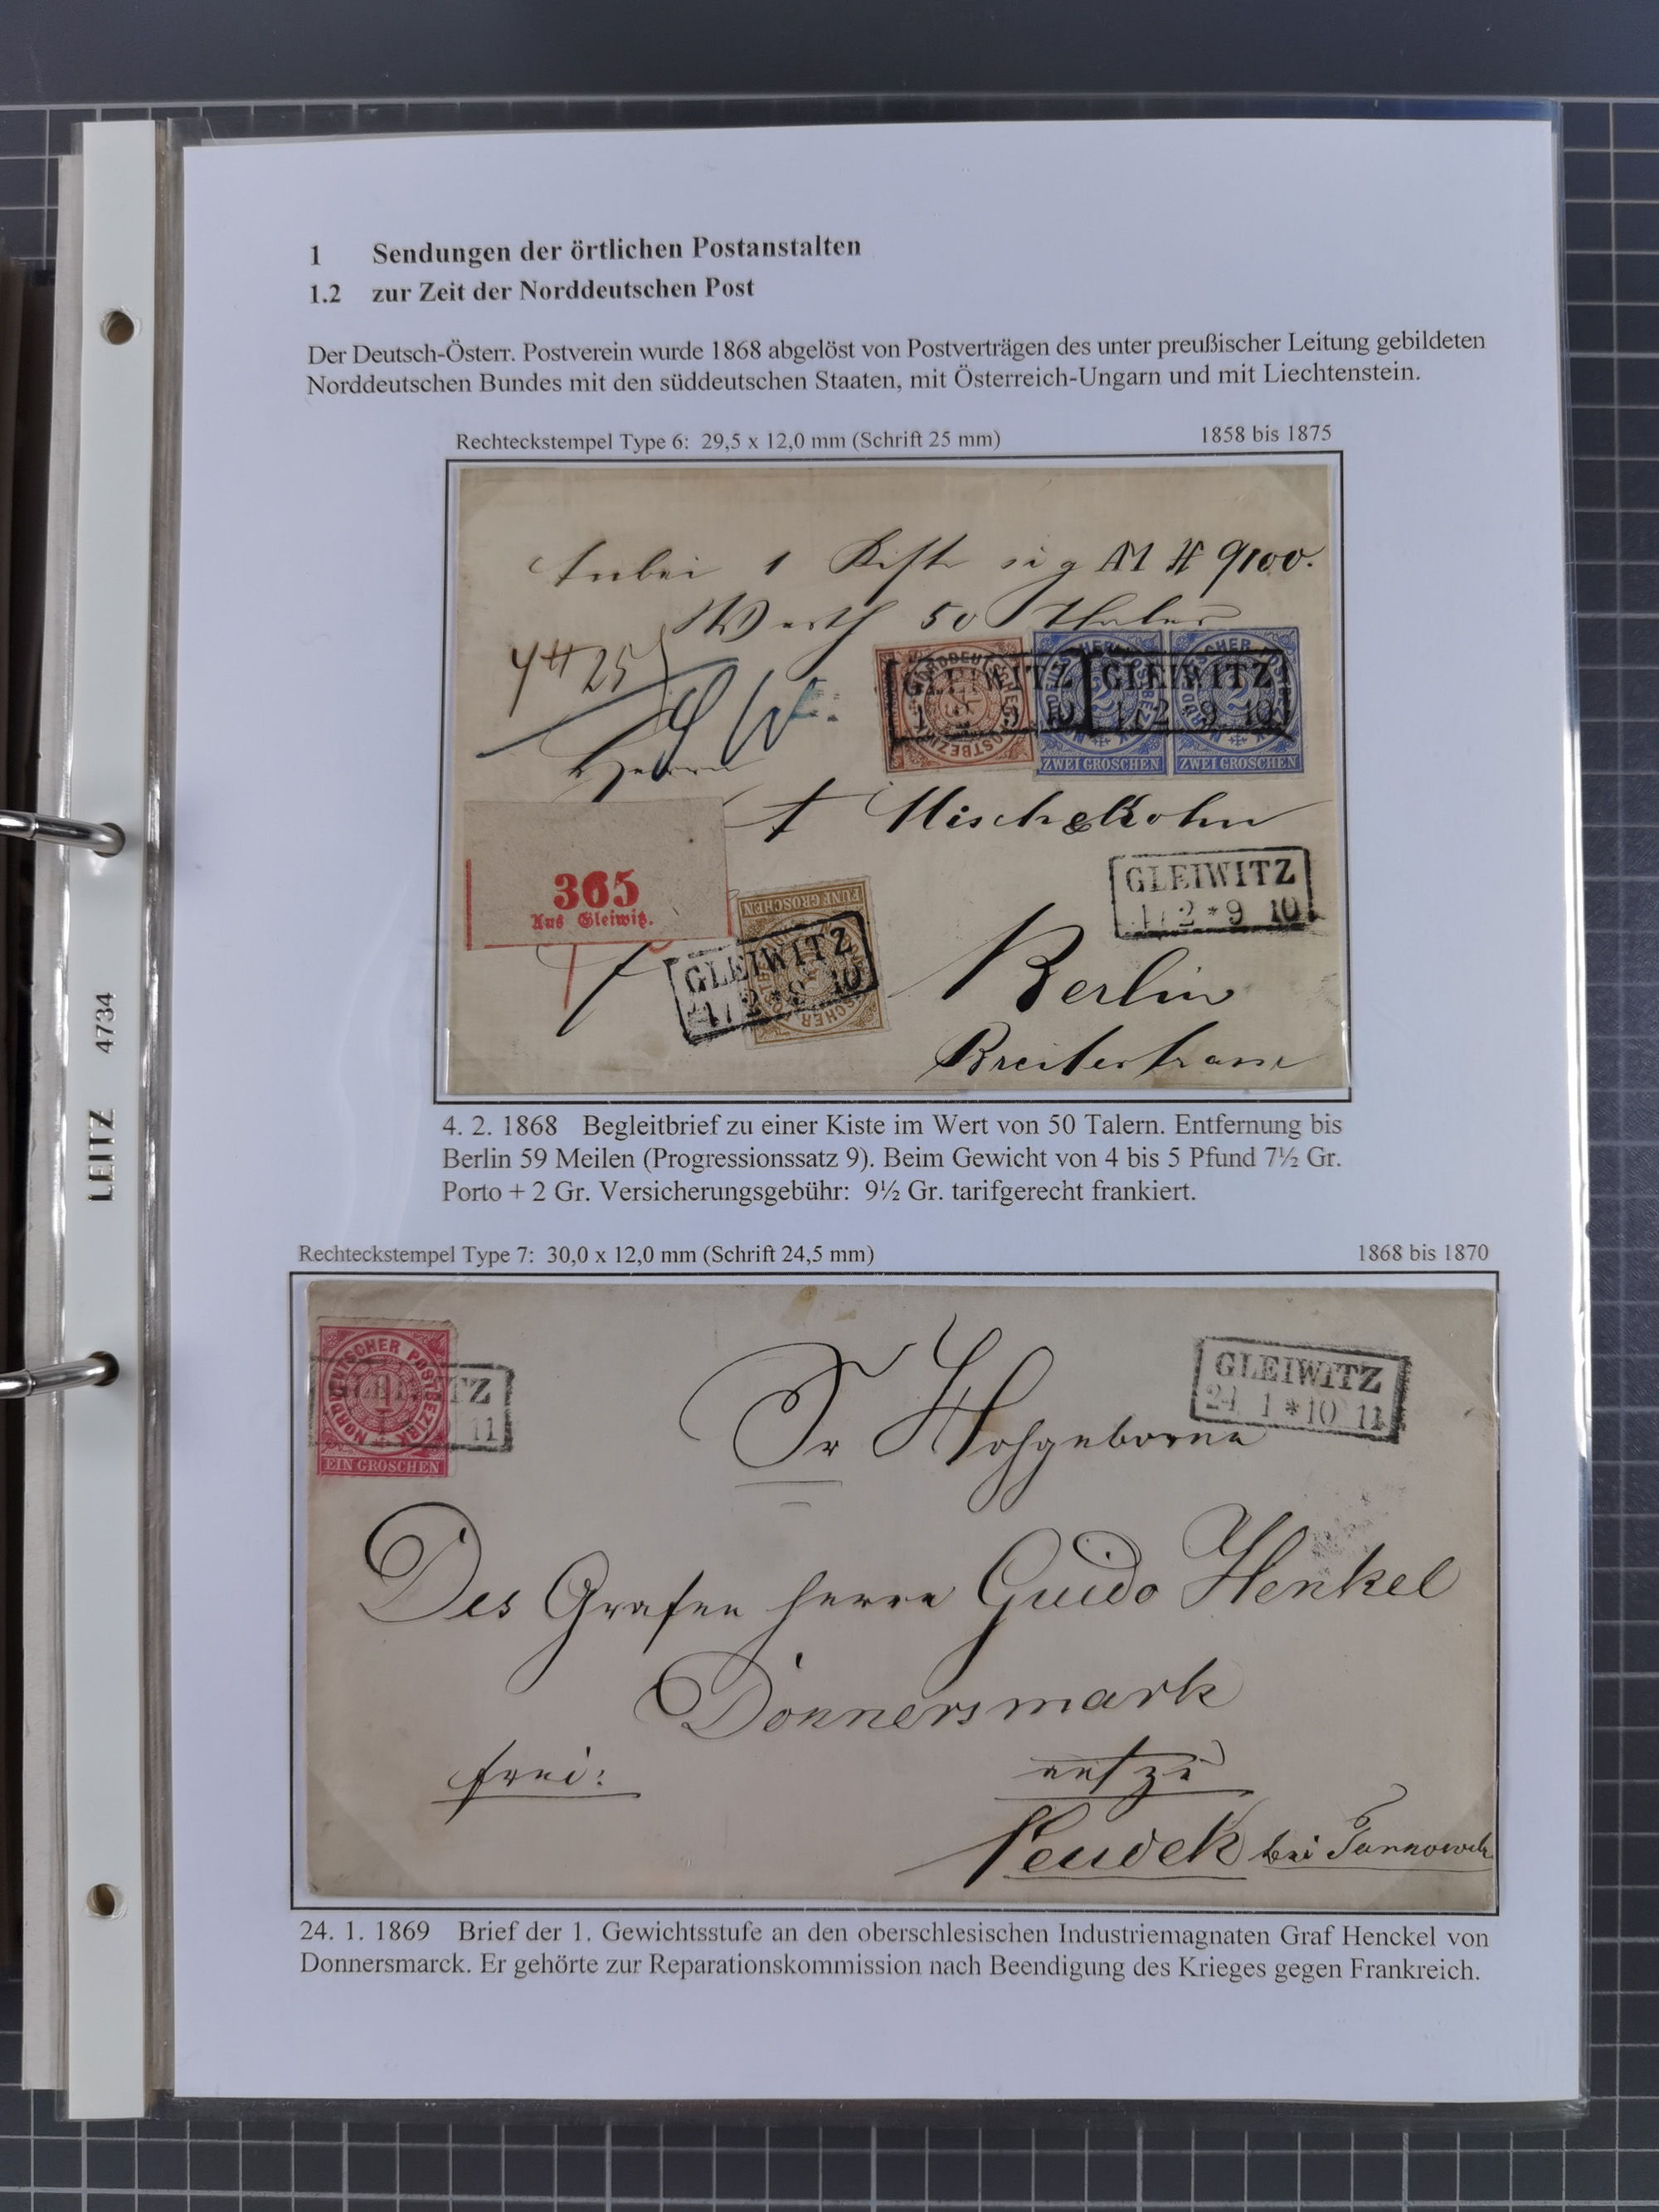 1 Sendungen der örtlichen Postanstalten
1.2 zur Zeit der Norddeutschen Post
Der Deutsch-Österr. Postverein wurde 1868 abgelöst von Postverträgen des unter preußischer Leitung gebildeten
Norddeutschen Bundes mit den süddeutschen Staaten, mit Österreich-Ungarn und mit Liechtenstein.
Rechteckstempel Type 6: 29,5 x 12,0 mm (Schrift 25 mm) 1858 bis 1875
Anbei 1 Kiste sig AM # 9100.
Werth 50 Thaler
4 # 25
GLEIWITZ GLEIWITZ
ZWEI GROSCHEN ZWEI GROSCHEN
Herrn
365
Aus Gleiwitz.
GLEIWITZ
4 2 * 9 10
FÜNF GROSCHEN
GLEIWITZ
4 2 * 9 10
Berlin
Breitestrasse
4. 2. 1868 Begleitbrief zu einer Kiste im Wert von 50 Talern. Entfernung bis
Berlin 59 Meilen (Progressionssatz 9). Beim Gewicht von 4 bis 5 Pfund 7½ Gr.
Porto + 2 Gr. Versicherungsgebühr: 9½ Gr. tarifgerecht frankiert.
Rechteckstempel Type 7: 30,0 x 12,0 mm (Schrift 24,5 mm) 1868 bis 1870
NORDDEUTSCHER POSTBEZIRK
1
EIN GROSCHEN
GLEIWITZ
24 1 * 10 11
Sr Hochgeboren
Des Grafen Herrn Guido Henkel
Donnersmark
frei:
auf zu
Neudek bei Tarnowitz
24. 1. 1869 Brief der 1. Gewichtsstufe an den oberschlesischen Industriemagnaten Graf Henckel von
Donnersmarck. Er gehörte zur Reparationskommission nach Beendigung des Krieges gegen Frankreich.
LEITZ 4734